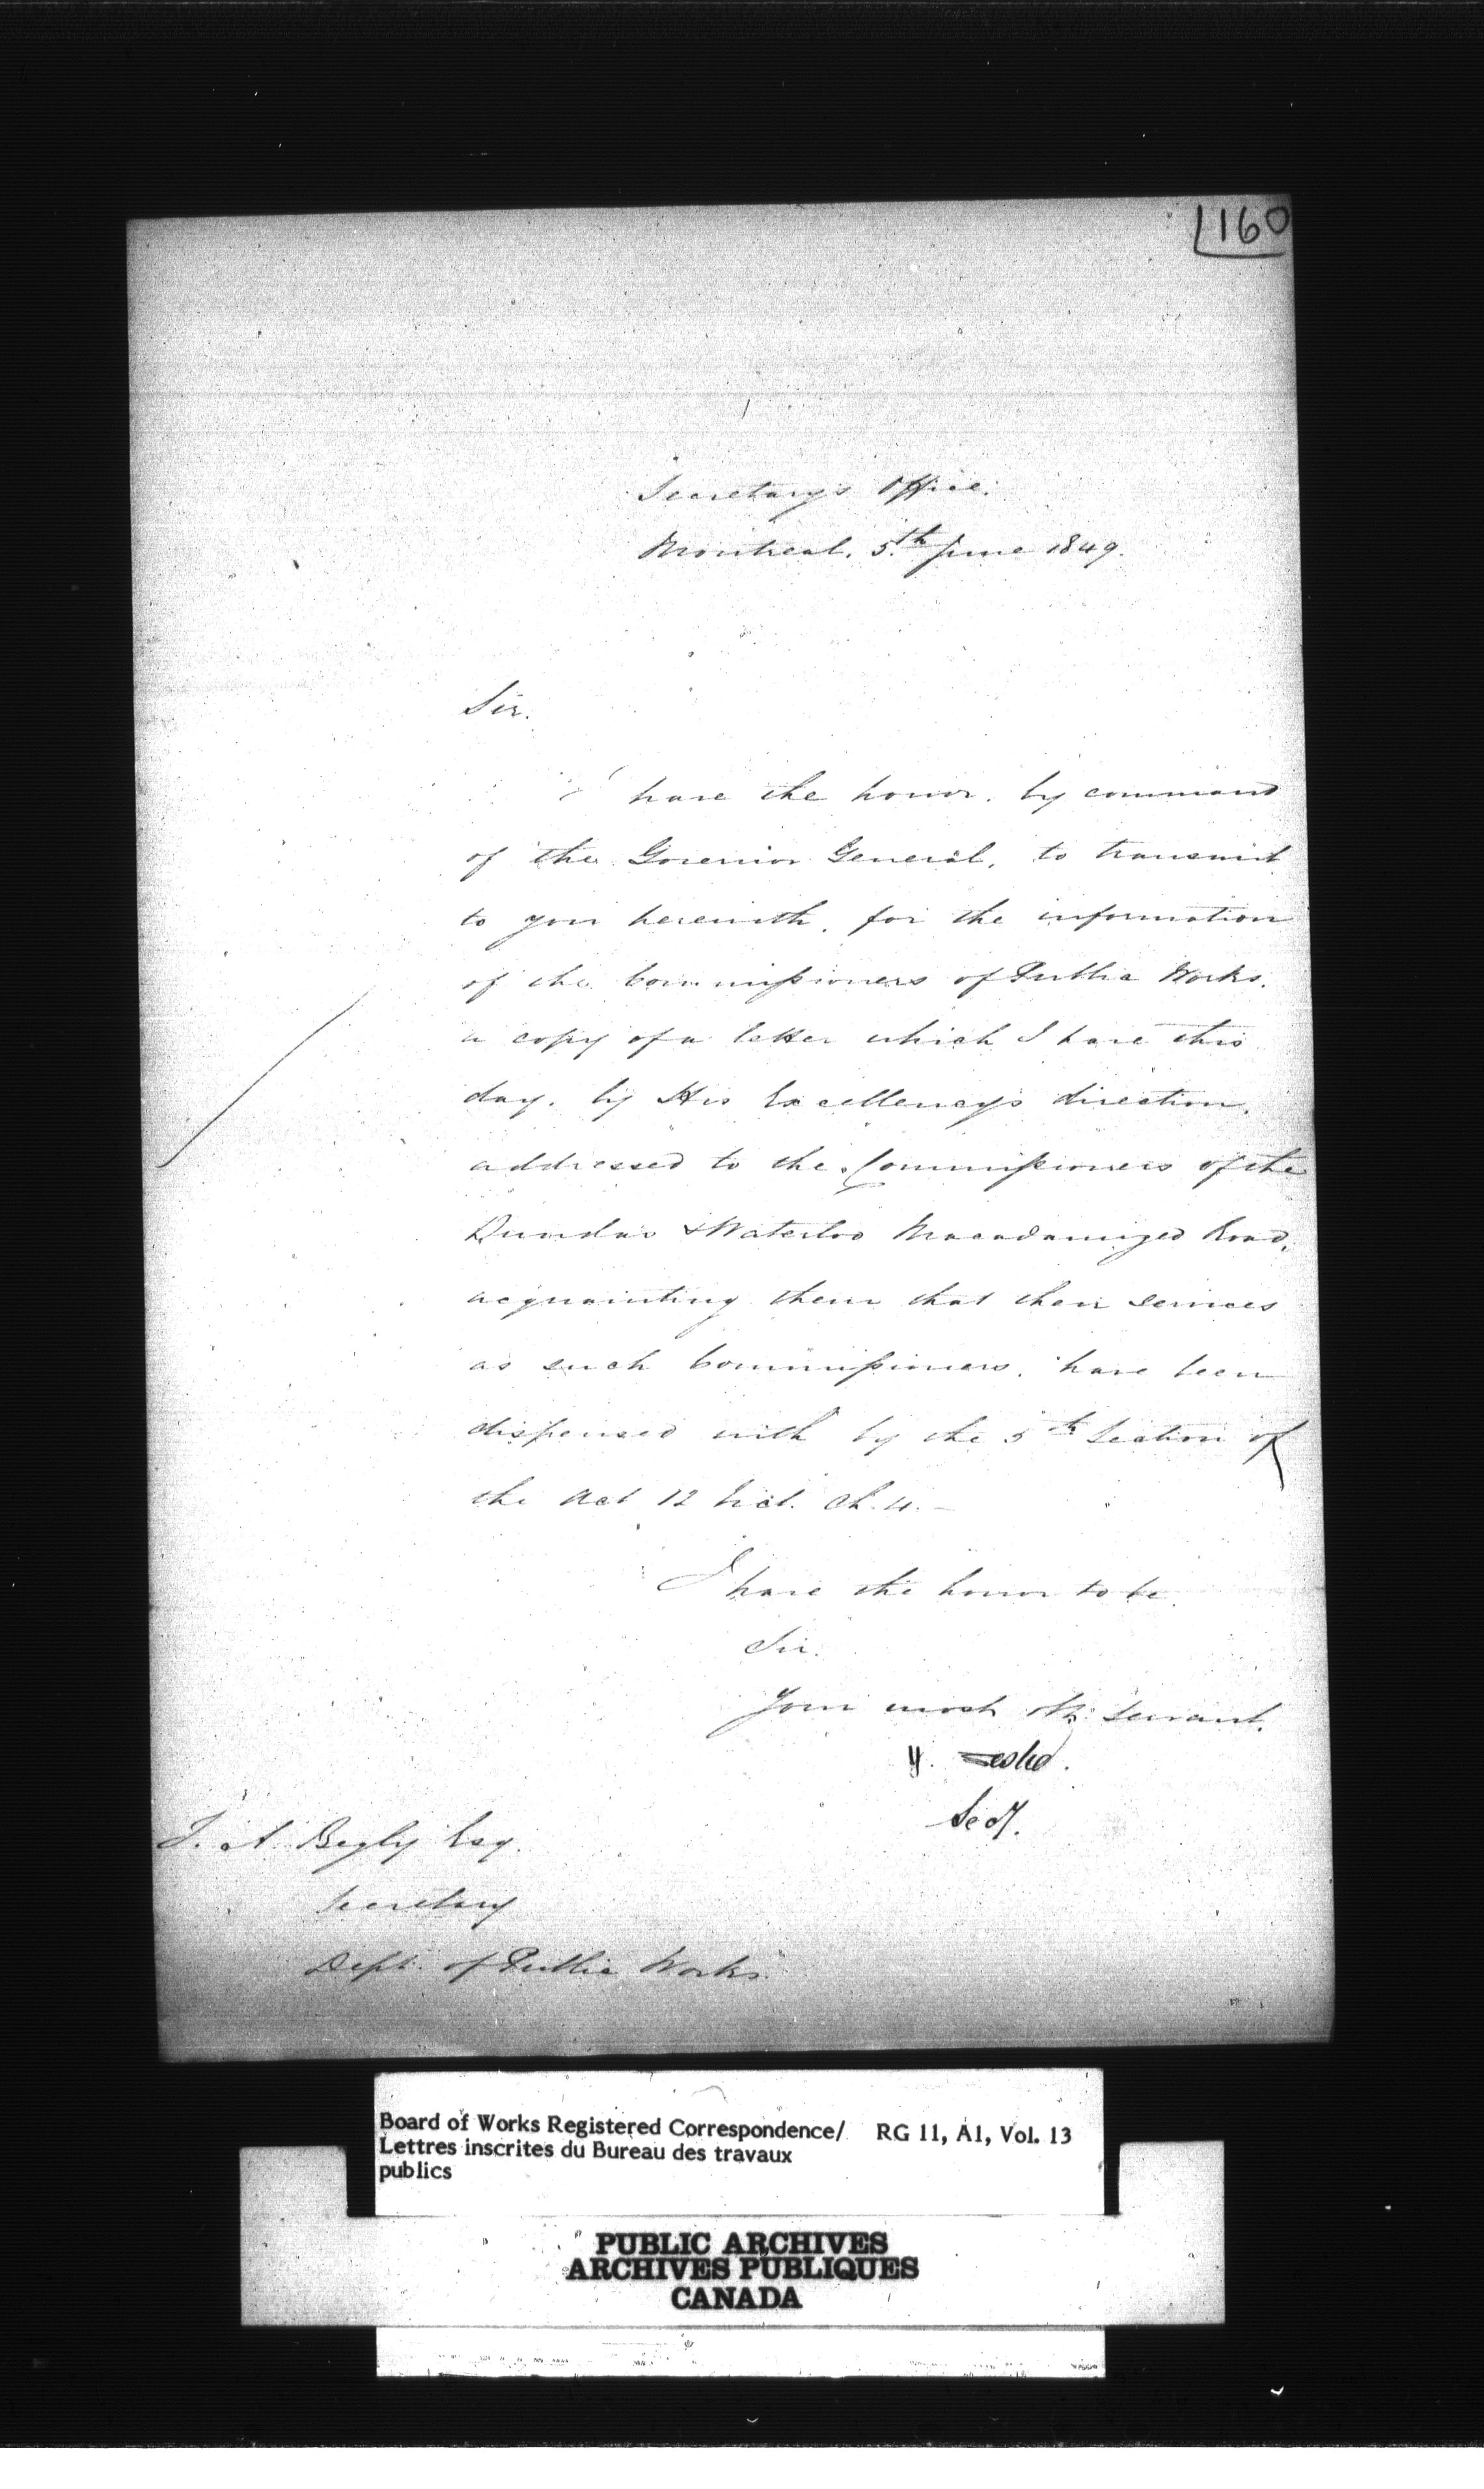 160
Secretary's Office.
Montreal, 5th June 1849.
Sir.
I have the honor, by command
of the Governor General, to transmit
to you herewith, for the information
of the Commissioners of Public Works,
a copy of a letter which I have this
day, by His Excellency's direction,
addressed to the Commissioners of the
Dundas & Waterloo Macadamized Road,
acquainting them that their services
as such Commissioners, have been
dispensed with by the 5th Section of
the Act 12 Vict. Ch. 4. —
I have the honor to be,
Sir.
Your most obt. servant.
Leslie.
Secy.
T. A. Begly Esq.
Secretary
Dept. of Public Works
Board of Works Registered Correspondence/ RG 11, A1, Vol. 13
Lettres inscrites du Bureau des travaux
publics
PUBLIC ARCHIVES
ARCHIVES PUBLIQUES
CANADA